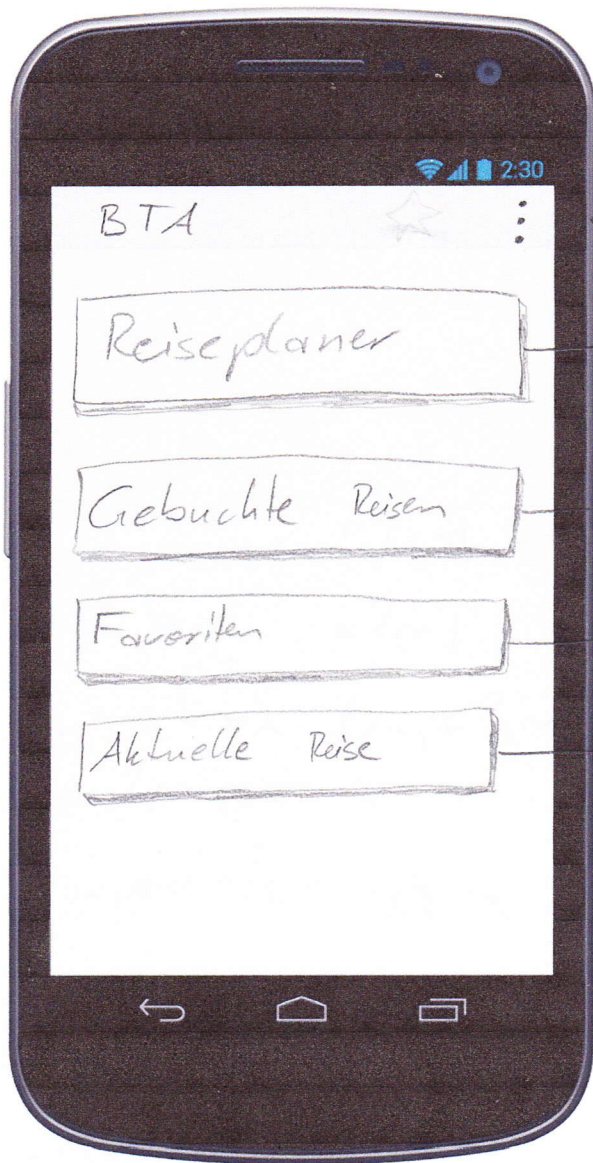 2:30
BTA
Reiseplaner
Gebuchte Reisen
Favoriten
Aktuelle Reise